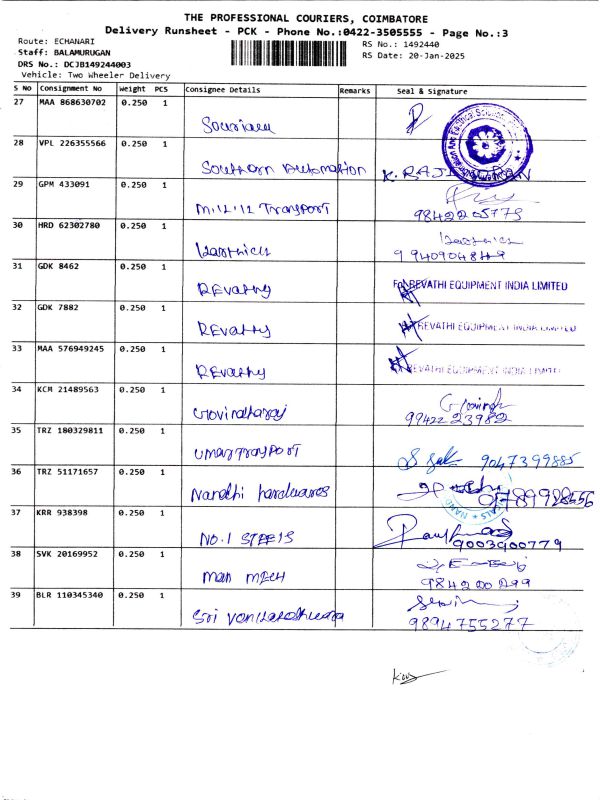 THE PROFESSIONAL COURIERS, COIMBATORE
Delivery Runsheet - PCK - Phone No.:0422-3505555 - Page No.:3
Route: ECHANARI
RS No.: 1492440
Staff: BALAMURUGAN
RS Date: 20-Jan-2025
DRS No.: DCJB149244003
Vehicle: Two Wheeler Delivery
S No Consignment No Weight PCS Consignee Details Remarks Seal & Signature
27 MAA 868630702 0.250 1
28 VPL 226355566 0.250 1
Southern Automation
29 GPM 433091 0.250 1
Transport
30 HRD 62302780 0.250 1
Karthick
31 GDK 8462 0.250 1
REvathy For REVATHI EQUIPMENT INDIA LIMITED
32 GDK 7882 0.250 1
REvathy REVATHI EQUIPMENT INDIA LIMITED
33 MAA 576949245 0.250 1
REvathy REVATHI EQUIPMENT INDIA LIMITED
34 KCM 21489563 0.250 1
Govindharaj 9942223982
35 TRZ 180329811 0.250 1
9047399885
36 TRZ 51171657 0.250 1
Nandhi hardwares
37 KRR 938398 0.250 1
NO.1 STEELS 9003900779
38 SVK 20169952 0.250 1
39 BLR 110345340 0.250 1
Sri 9894755277